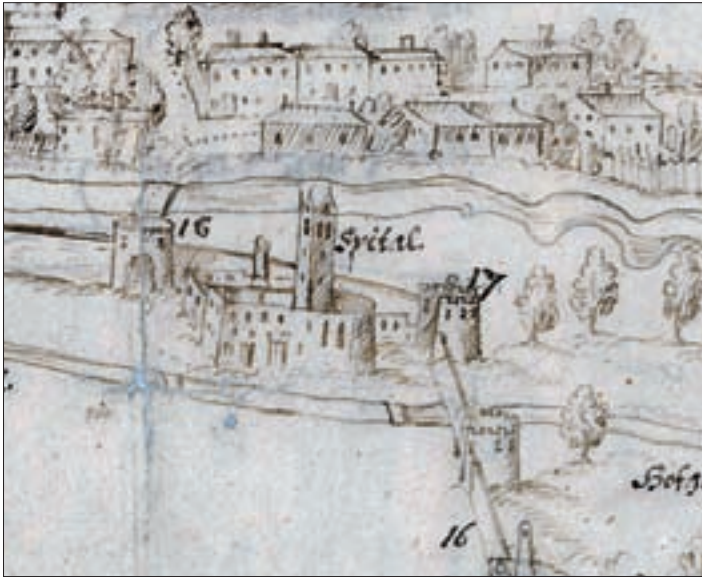 16
Spital.
17
16